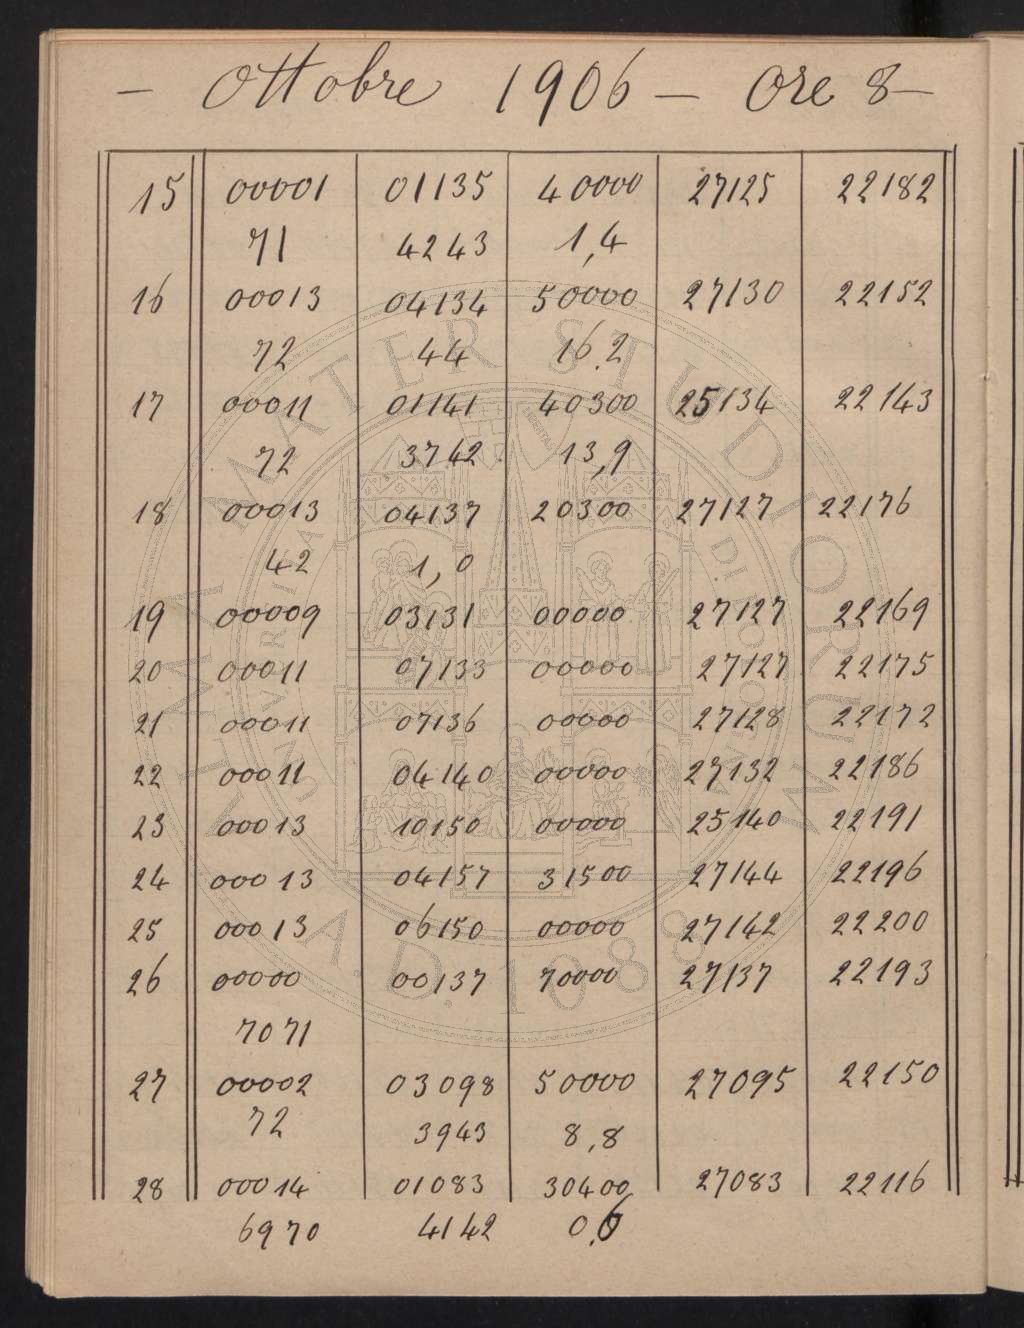 - Ottobre 1906 - Ore 8 -
15 00001 01135 40000 27125 22182
71 4243 1,4
16 00013 04134 50000 27130 22152
72 44 16.2
17 00011 01141 40300 25134 22143
72 3742 13,9
18 00013 04137 20300 27127 22176
42 1,0
19 00009 03131 00000 27127 22169
20 00011 07133 00000 27127 22175
21 00011 07136 00000 27128 22172
22 00011 04140 00000 27132 22186
23 00013 10150 00000 25140 22191
24 00013 04157 31500 27144 22196
25 00013 06150 00000 27142 22200
26 00000 00137 70000 27137 22193
7071
27 00002 03098 50000 27095 22150
72 3943 8,8
28 00014 01083 30400 27083 22116
6970 4142 0,6
ALMA MATER STUDIORUM
UNIVERSITÀ DI BOLOGNA
A.D. 1088